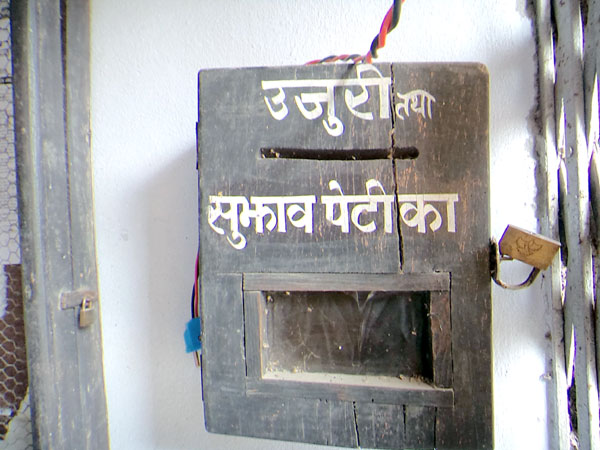 उजुरी तथा
सुझाव पेटीका